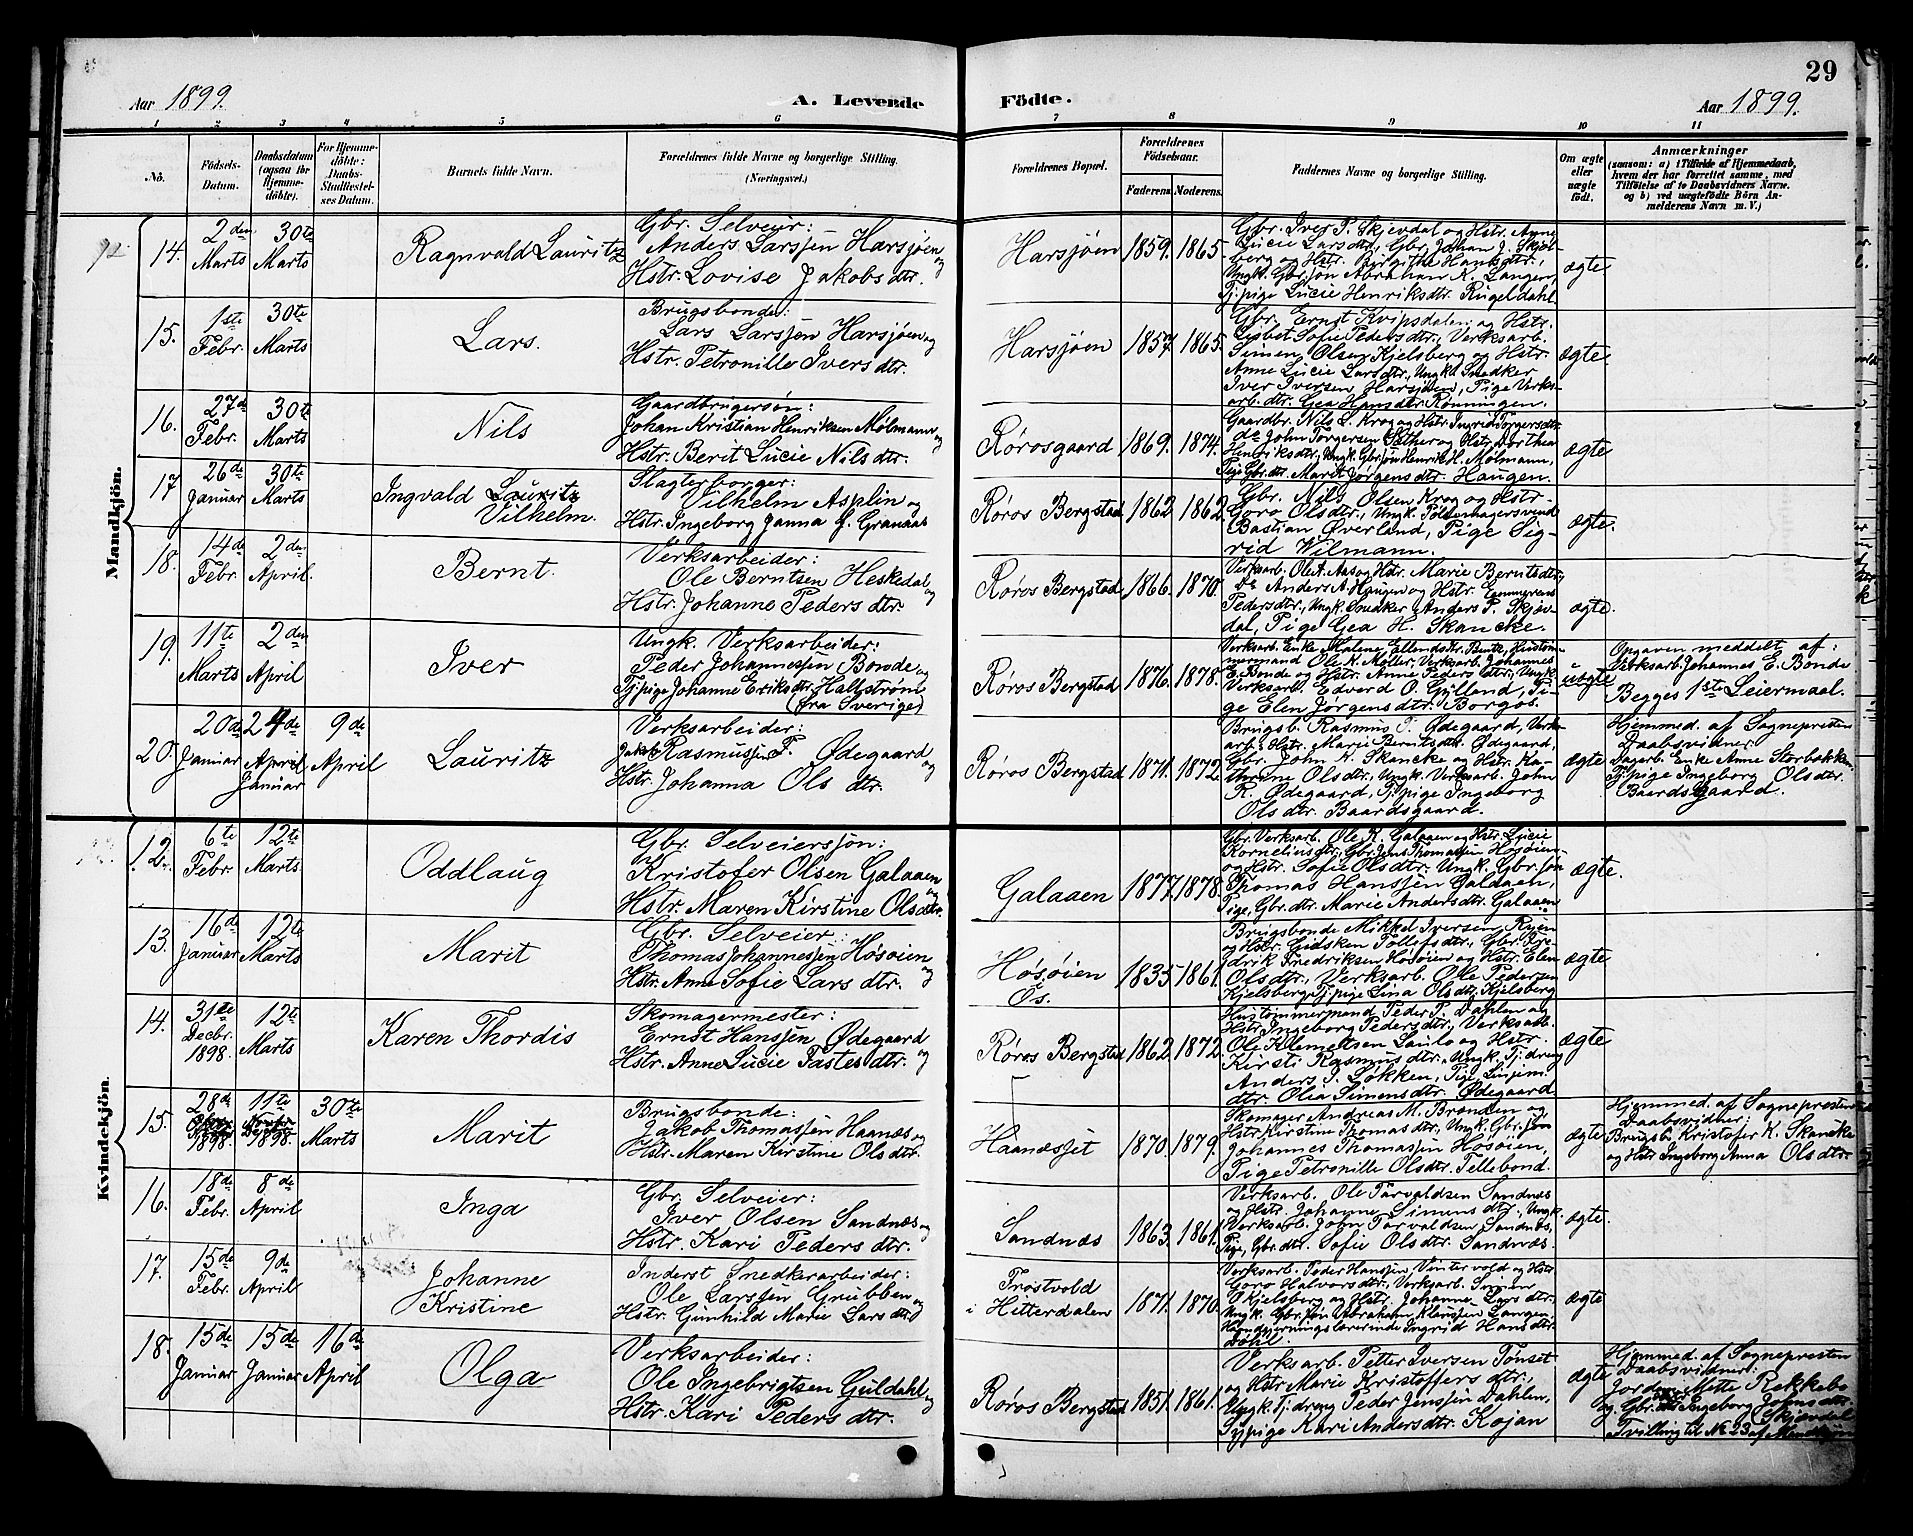 29
Aar 1899.
A. Levende
Födte.
Aar 1899.
1 2 3 4 5 6 7 8 9 10 11
No. Födsels-Datum. Daabsdatum (ogsaa for Hjemmedöbte). For Hjemmedöbte: Daabs-Stadfæstelses Datum. Barnets fulde Navn. Forældrenes fulde Navne og borgerlige Stilling. (Næringsvei.) Forældrenes Bopæl. Forældrenes Födselsaar. Faderens. Moderens. Faddernes Navne og borgerlige Stilling. Om ægte eller uægte födt. Anmærkninger (saasom: a) i Tilfælde af Hjemmedaab, hvem der har forrettet samme, med Tilföielse af to Daabsvidners Navne. og b) ved uægtefödte Börn Anmelderens Navn m. V.)
Mandkjön.
14. 2den Marts 30te Marts
Ragnvald Lauritz
Gbr. Selveier:
Anders Larssen Harsjøen og
Hstr. Lovise Jakobsdtr.
Harsjøen 1859. 1865.
Gbr. Iver P. Skjevdal og Hstr. Anne
Lucie Larsdtr., Gbr. Johan J. Skjøl-
berg og Hstr. Birgithe Hansdtr.,
Ungk. Gbr.søn Abraham K. Langen,
Tj.pige Lucie Henriksdtr. Rugeldahl
ægte
15. 1ste Febr. 30te Marts
Lars.
Brugsbonde:
Lars Larssen Harsjøen og
Hstr. Petronille Iversdtr.
Harsjøen 1857. 1865.
Gbr. Ernst Kvipsdalen og Hstr.
Lisbet Sofie Pedersdtr., Verksarb.
Simen Olsen Kjelsberg og Hstr.
Anne Lucie Larsdtr., Ungk. Snedker
Iver Iversen Harsjøen, Pige Verks-
arb.dtr. Gea Hansdtr. Rønningen.
ægte.
16. 27de Febr. 30te Marts
Nils
Gaardbrugersøn:
Johan Kristian Henriksen Mølmann og
Hstr. Berit Lucie Nilsdtr.
Rørosgaard 1869. 1874.
Gaardbr. Nils L. Krog og Hstr. Ingrid Torgersdtr.
do John Torgersen Sæther og Hstr. Dorthea
Henriksdtr., Ungk. Gbr.søn Henrik H. Mølmann,
Pige Gbr.dtr. Marit Jørgensdtr. Haugen.
ægte
17 26de Januar 30te Marts
Ingvald Lauritz
Vilhelm.
Slagterborger:
Vilhelm Asplin og
Hstr. Ingeborg Janna f. Granaas
Røros Bergstad 1862 1862
Gbr. Nils Olsen Krog og Hstr.
Goro Olsdtr., Ungk. Pølsemagersvend
Bastian Øverland, Pige Sig-
rid Wilmann.
ægte.
18. 14de Febr. 2den April.
Bernt.
Verksarbeider:
Ole Berntsen Heskedal og
Hstr. Johanne Pedersdtr.
Røros Bergstad 1866. 1870.
Verksarb. Ole A. Aas og Hstr. Marie Berntsdtr.,
Do Anders A. Haugen og Hstr.
Pedersdtr., Ungk. Snedker Anders P. Skjøv-
dal, Pige Gea H. Skancke.
ægte.
19. 11te Marts 2den April
Iver
Ungk. Verksarbeider:
Peder Johannessen Bonde og
Tj.pige Johanne Eriksdtr. Hallstrøm
(fra Sverige)
Røros Bergstad 1876. 1878.
Verksarb. Enke Malene Ellendsdtr. Bente, Hustøm-
mermand Ole K. Møller, Verksarb. Johannes
E. Bonde og Hstr. Anne Pedersdtr., Ungk.
Verksarb. Edvard O. Gylland, Pi-
ge Elen Jørgensdtr. Borgos.
uægte
Opgaven meddelt af:
Verksarb. Johannes E. Bonde
Begges 1ste Leiermaal.
20. 20de Januar 24de April Januar 9de April
Lauritz
Verksarbeider:
Jakob Rasmussen F. Ødegaard og
Hstr. Johanna Olsdtr.
Røros Bergstad 1871. 1872.
Brugsb. Rasmus T. Ødegaard, Verks-
arb. Hstr. Marie Berntsdtr. Ødegaard,
Gbr. John K. Skancke og Hstr. Ka-
thrine Olsdtr., Ungk. Verksarb. John
R. Ødegaard, Tj.pige Ingeborg
Olsdtr. Baardsgaard.
ægte
Hjemmed. af Sognepresten
Daabsvidner
Dagarb. Enke Anne Storbakken
Tj.pige Ingeborg Olsdtr.
Baardsgaard.
Kvindekjön.
12. 6te Febr. 12te Marts
Oddlaug
Gbr. Selveiersøn:
Kristofer Olsen Galaaen og
Hstr. Maren Kirstine Olsdtr.
Galaaen 1877. 1878.
Gbr. Verksarb. Ole K. Galaaen og Hstr. Lucie
Korneliusdtr., Gbr. Jens Thomassen Høsøien
og Hstr. Sofie Olsdtr., Ungk. Gbr.søn
Thomas Hanssen Galaaen,
Pige, Gbr.dtr. Marie Andersdtr. Galaaen
ægte.
13. 16de Januar 12te Marts
Marit
Gbr. Selveier:
Thomas Johannessen Høsøien og
Hstr. Anne Sofie Larsdtr.
Høsøien
Øs. 1835 1861.
Brugsbonde Mikkel Iversen Ryen
og Hstr. Gidsken Tollefsdtr., Gbr. Fre-
drik Fredriksen Høsøien og Hstr. Elen
Olsdtr., Verksarb. Ole Pedersen
Kjelsberg, Tj.pige Lina Olsdtr. Kjelsberg
ægte
14. 31te Decbr. 1898. 12te Marts
Karen Thordis
Skomagermester:
Ernst Hanssen Ødegaard og
Hstr. Anne Lucie Tastesdtr.
Røros Bergstad 1862. 1872.
Hustømmermand Peder P. Dahlen og
Hstr. Ingeborg Pedersdtr., Verksarb.
Ole Klemetsen Saulo og Hstr.
Kirsti Rasmusdtr., Ungk. Tj.dreng
Anders J. Løkken, Pige Linjem.
dtr. Olia Simensdtr. Ødegaard
ægte
15. 28de 1898. 11te 1898. 30te Marts
Marit
Brugsbonde:
Jakob Thomassen Haanæs og
Hstr. Maren Kirstine Olsdtr.
Haanæsset 1870. 1879.
Skomager Andreas M. Brænden og
Hstr. Kirstine Thomasdtr., Ungk. Gbr.søn
Johannes Thomassen Høsøien,
Pige Petronille Olsdtr. Tellebond.
ægte
Hjemmed. af Sognepresten
Daabsvidner:
Brugsb. Kristofer K. Skancke
og Hstr. Ingeborg Anna Olsdtr.
16. 18de Febr. 8de April
Inga
Gbr. Selveier:
Iver Olsen Sandnæs og
Hstr. Kari Pedersdtr.
Sandnæs 1863. 1861.
Verksarb. Ole Tarvaldsen Sandnæs
og Hstr. Johanne Simensdtr., Ungk.
Verksarb. John Tarvaldsen Sandnæs,
Pige, Gbr.dtr. Sofie Olsdtr. Sandnæs.
ægte.
17. 15de Febr. 9de April
Johanne
Kristine
Inderst Snedkerarbeider:
Ole Larssen Grubben og
Hstr. Gunhild Marie Larsdtr.
Trostvold
i Hitterdalen 1871. 1870.
Verksarb. Peder Hanssen Vintervold og Hstr.
Goro Halvorsdtr., Verksarb. Simen
O. Kjelsberg og Hstr. Johanne Larsdtr.
Ungk. Gbr.søn Abraham Klaussen Langen,
Haandgjerningslærerinde Ingrid Hansdtr.
Døhl.
ægte
18. 15de Januar 15de Januar 16de April
Olga
Verksarbeider:
Ole Ingebrigtsen Guldahl og
Hstr. Kari Pedersdtr.
Røros Bergstad 1851. 1861.
Verksarb. Petter Iversen Tønset
og Hstr. Marie Kristoffersdtr.,
Ungk. Tj.dreng Peder Jenssen Dahlen,
Sypige Kari Andersdtr. Kojan
ægte
Hjemmed. af Sognepresten
Daabsvidner:
Jordm. Mette Rekkebo
og Gbr. Ingeborg Johnsdtr.
Skjevdal
Tvilling til No 23 af Mandkjøn